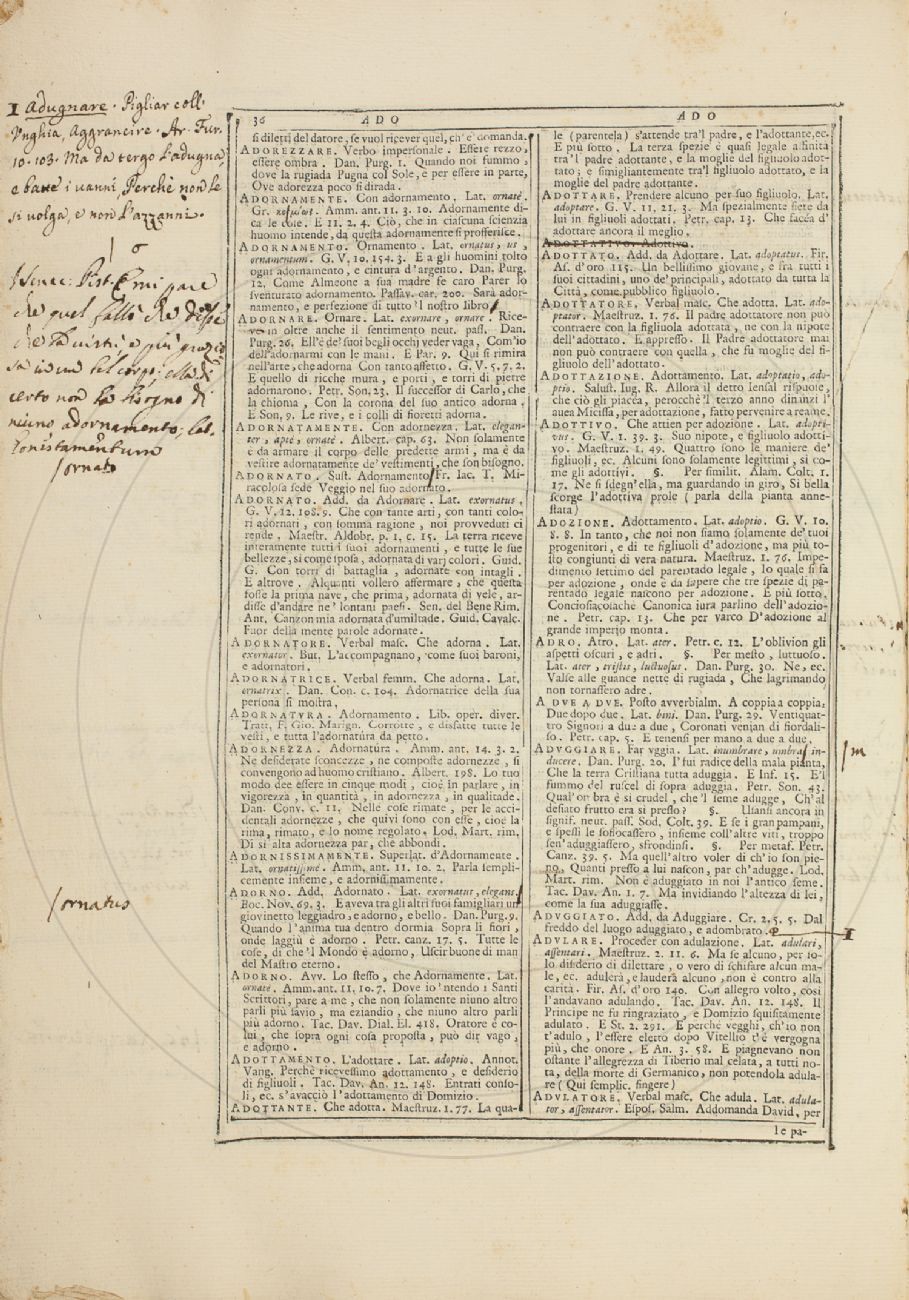 I Adugnare. Pigliar coll'
Unghia, Aggrancire. Ar. Fur.
10. 103. Ma da tergo l'adugna
e batte i vanni, Perchè non se
si volga, e non l'azzanni.
Pist. E mi pare
che quel falli che disse
certo non ha bisogno di
niuno adornamento; lat.
ornato
ornatus
36 ADO
si diletti del datore, se vuol ricever quel, ch'e' domanda.
ADOREZZARE. Verbo impersonale. Essere rezzo,
essere ombra. Dan. Purg. 1. Quando noi fummo,
dove la rugiada Pugna col Sole, e per essere in parte,
Ove adorezza poco si dirada.
ADORNAMENTE. Con adornamento. Lat. ornatè.
Gr. Amm. ant. 11. 3. 10. Adornamente di-
ca le cose. E 11. 2. 4. Ciò, che in ciascuna scienzia
huomo intende, da questa adornamente si profferisce.
ADORNAMENTO. Ornamento. Lat. ornatus, us,
ornamentum. G. V. 10. 154. 3. E a gli huomini tolto
ogni adornamento, e cintura d'argento. Dan. Purg.
12. Come Almeone a sua madre fe caro Parer lo
sventurato adornamento. Passav. car. 200. Sarà ador-
namento, e perfezione di tutto 'l nostro libro
ADORNARE. Ornare. Lat. exornare, ornare. Rice-
ve in oltre anche il sentimento neut. pass. Dan.
Purg. 26. Ell'è de' suoi begli occhj veder vaga, Com'io
dell'adornarmi con le mani. E Par. 9. Qui si rimira
nell'arte, che adorna Con tanto affetto. G. V. 5. 7. 2.
E quello di ricche mura, e porti, e torri di pietre
adornarono. Petr. Son, 23. Il successor di Carlo, che
la chioma, Con la corona del suo antico adorna.
E Son, 9. Le rive, e i colli di fioretti adorna.
ADORNATAMENTE. Con adornezza. Lat. elegan-
ter, aptè, ornatè. Albert. cap. 63. Non solamente
è da armare il corpo delle predette armi, ma è da
vestire adornatamente de' vestimenti, che son bisogno.
ADORNATO. Sust. Adornamento Fr. Iac. T. Mi-
racolosa sede Veggio nel suo adornato.
ADORNATO. Add. da Adornare. Lat. exornatus.
G. V. 12. 108. 9. Che con tante arti, con tanti colo-
ri adornati, con somma ragione, noi provveduti ci
rende. Maestr. Aldobr. p. 1, c. 15. La terra riceve
interamente tutti i suoi adornamenti, e tutte le sue
bellezze, si come sposa, adornata di varj colori. Guid.
G. Con torri di battaglia, adornate con intagli.
E altrove. Alquanti vollero affermare, che questa
fosse la prima nave, che prima, adornata di vele, ar-
disse d'andare ne' lontani paesi. Sen. del Bene Rim.
Ant. Canzon mia adornata d'umiltade. Guid. Cavalc.
Fuor della mente parole adornate.
ADORNATORE. Verbal masc. Che adorna. Lat.
exornator. But. L'accompagnano, come suoi baroni,
e adornatori.
ADORNATRICE. Verbal femm. Che adorna. Lat.
ornatrix. Dan. Con. c. 104. Adornatrice della sua
persona si mostra.
ADORNATVRA. Adornamento. Lib. oper. diver.
Tratt. F. Gio. Marign. Corrotte, e disfatte tutte le
vesti, e tutta l'adornatura da petto.
ADORNEZZA. Adornatura. Amm. ant. 14. 3. 2.
Ne desiderate sconcezze, ne composte adornezze, si
convengono ad huomo cristiano. Albert. 198. Lo tuo
modo dee essere in cinque modi, cioè in parlare, in
vigorezza, in quantità, in adornezza, in qualitade.
Dan. Conv. c. 11. Nelle cose rimate, per le acci-
dentali adornezze, che quivi sono con esse, cioè la
rima, rimato, e lo nome regolato. Lod. Mart. rim.
Di sì alta adornezza par, che abbondi.
ADORNISSIMAMENTE. Superlat. d'Adornamente.
Lat. ornatissimè. Amm. ant. 11. 10. 2. Parla sempli-
cemente insieme, e adornissimamente.
ADORNO. Add. Adornato. Lat. exornatus, elegans.
Boc. Nov. 69. 3. E aveva tra gli altri suoi famigliari un
giovinetto leggiadro, e adorno, e bello. Dan. Purg. 9.
Quando l'anima tua dentro dormia Sopra li fiori,
onde laggiù è adorno. Petr. canz. 17. 5. Tutte le
cose, di che 'l Mondo è adorno, Uscir buone di man
del Mastro eterno.
ADORNO. Avv. Lo stesso, che Adornamente. Lat.
ornatè. Amm. ant. 11, 10. 7. Dove io 'ntendo i Santi
Scrittori, pare a me, che non solamente niuno altro
parli più savio, ma eziandio, che niuno altro parli
più adorno. Tac. Dav. Dial. El. 418. Oratore è co-
lui, che sopra ogni cosa proposta, può dir vago,
e adorno.
ADOTTAMENTO. L'adottare. Lat. adoptio. Annot.
Vang. Perchè ricevessimo adottamento, e desiderio
di figliuoli. Tac. Dav. An. 12. 148. Entrati conso-
li, ec. s'avacciò l'adottamento di Domizio.
ADOTTANTE. Che adotta. Maestruz. 1. 77. La qua-
ADO
le (parentela) s'attende tra'l padre, e l'adottante, ec.
E più sotto. La terza spezie è quasi legale affinità
tra'l padre adottante, e la moglie del figliuolo adot-
tato; e simigliantemente tra'l figliuolo adottato, e la
moglie del padre adottante.
ADOTTARE. Prendere alcuno per suo figliuolo. Lat.
adoptare. G. V. 11. 21. 3. Ma spezialmente siete da
lui in figliuoli adottati. Petr. cap. 13. Che facéa d'
adottare ancora il meglio.
ADOTTATIVO. Adottivo.
ADOTTATO. Add. da Adottare. Lat. adoptatus. Fir.
As. d'oro 115. Un bellissimo giovane, e fra tutti i
suoi cittadini, uno de' principali, adottato da tutta la
Città, come pubblico figliuolo.
ADOTTATORE. Verbal masc. Che adotta. Lat. ado-
ptator. Maestruz. 1. 76. Il padre adottatore non può
contraere con la figliuola adottata, ne con la nipote
dell'adottato. E appresso. Il Padre adottatore mai
non può contraere con quella, che fu moglie del fi-
gliuolo dell'adottato.
ADOTTAZIONE. Adottamento. Lat. adoptatio, ado-
ptio. Salust. Iug. R. Allora il detto sensal rispuose,
che ciò gli piacéa, perocchè 'l terzo anno dinanzi l'
auea Micissa, per adottazione, fatto pervenire a reame.
ADOTTIVO. Che attien per adozione. Lat. adopti-
vus. G. V. 1. 39. 3. Suo nipote, e figliuolo adotti-
vo. Maestruz. 1. 49. Quattro sono le maniere de'
figliuoli, ec. Alcuni sono solamente legittimi, sì co-
me gli adottivi. §. Per similit. Alam. Colt. 1.
17. Ne si sdegn'ella, ma guardando in giro, Si bella
scorge l'adottiva prole (parla della pianta anne-
stata)
ADOZIONE. Adottamento. Lat. adoptio. G. V. 10.
8. 8. In tanto, che noi non siamo solamente de' tuoi
progenitori, e di te figliuoli d'adozione, ma più to-
sto congiunti di vera natura. Maestruz. 1. 76. Impe-
dimento settimo del parentado legale, lo quale si fa
per adozione, onde è da sapere che tre spezie di pa-
rentado legale nascono per adozione. E più sotto.
Conciosiacosachè Canonica iura parlino dell'adozio-
ne. Petr. cap. 13. Che per varco D'adozione al
grande imperio monta.
ADRO. Atro. Lat. ater. Petr. c. 12. L'oblivion gli
aspetti oscuri, e adri. §. Per mesto, luttuoso.
Lat. ater, tristis, luctuosus. Dan. Purg. 30. Ne, ec.
Valse alle guance nette di rugiada, Che lagrimando
non tornassero adre.
A DVE A DVE. Posto avverbialm. A coppia a coppia.
Due dopo due. Lat. bini. Dan. Purg. 29. Ventiquat-
tro Signori a due a due, Coronati venian di fiordali-
so. Petr. cap. 5. E tenensi per mano a due a due.
ADVGGIARE. Far vggia. Lat. inumbrare, umbra in-
ducere. Dan. Purg. 20. I' fui radice della mala pianta,
Che la terra Cristiana tutta aduggia. E Inf. 15. E'l
fummo del ruscel di sopra aduggia. Petr. Son. 43.
Qual'ombra è sì crudel, che 'l seme adugge, Ch'al
desiato frutto era sì presso? §. Usasi ancora in
signif. neut. pass. Sod. Colt. 39. E se i gran pampani,
e spessi le soffocassero, insieme coll'altre viti, troppo
sen'aduggiassero, sfrondinsi. §. Per metaf. Petr.
Canz. 39. 5. Ma quell'altro voler di ch'io son pie-
no, Quanti presso a lui nascon, par ch'adugge. Lod.
Mart. rim. Non è aduggiato in noi l'antico seme.
Tac. Dav. An. 1. 7. Ma invidiando l'altezza di lei,
come la sua aduggiasse.
ADVGGIATO. Add. da Aduggiare. Cr. 2. 5. 5. Dal
freddo del luogo aduggiato, e adombrato. I
ADVLARE. Proceder con adulazione. Lat. adulari,
assentari. Maestruz. 2. 11. 6. Ma se alcuno, per so-
lo disiderio di dilettare, o vero di schifare alcun ma-
le, ec. adulerà, e lauderà alcuno, non è contro alla
carità. Fir. As. d'oro 140. Con allegro volto, così
l'andavano adulando. Tac. Dav. An. 12. 148. Il
Principe ne fu ringraziato, e Domizio squisitamente
adulato. E St. 2. 291. E perchè vegghi, ch'io non
t'adulo, l'essere eletto dopo Vitellio t'è vergogna
più, che onore. E An. 3. 58. E piagnevano non
ostante l'allegrezza di Tiberio mal celata, a tutti no-
ta, della morte di Germanico, non potendola adula-
re (Qui semplic. fingere)
ADVLATORE. Verbal masc. Che adula. Lat. adula-
tor, assentator. Espos. Salm. Addomanda David, per
le pa-
m